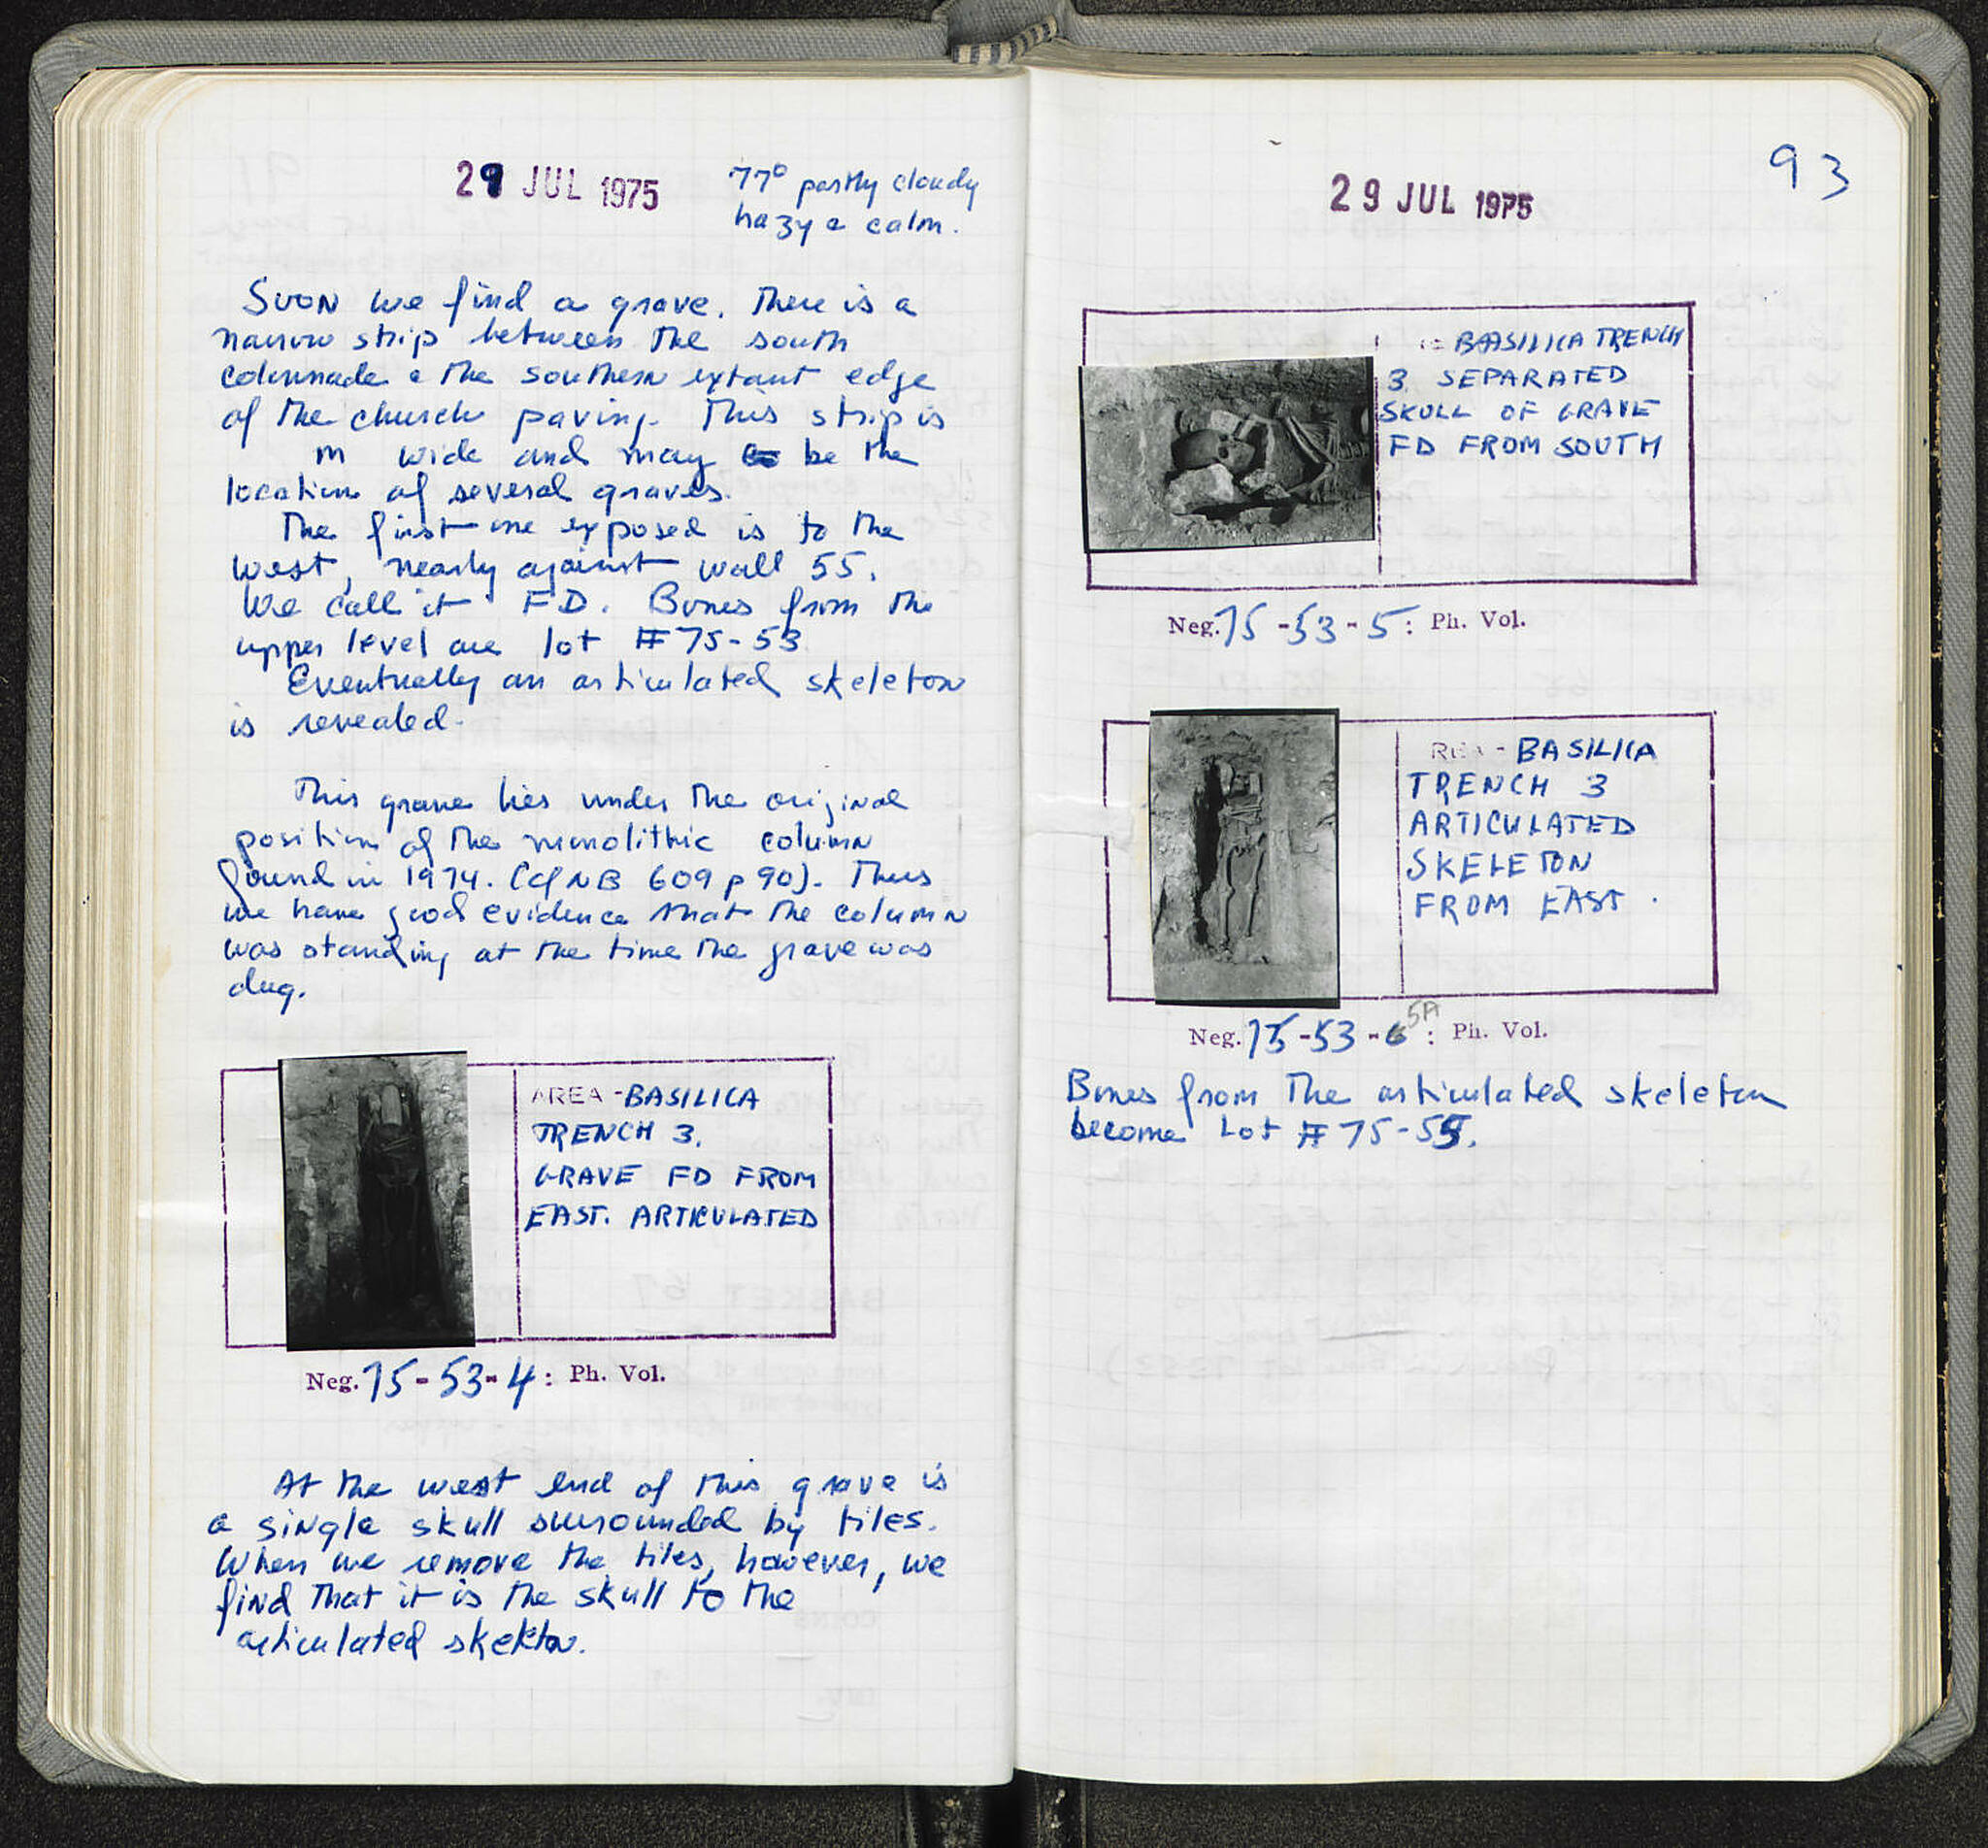 29 JUL 1975
77° partly cloudy
hazy & calm.
Soon we find a grave. There is a
narrow strip between the south
colonnade & the southern extant edge
of the church paving. This strip is
m wide and may be the
location of several graves.
The first one exposed is to the
west, nearly against wall 55.
We call it FD. Bones from the
upper level are lot # 75-53
Eventually an articulated skeleton
is revealed.
This grave lies under the original
position of the monolithic column
found in 1974. (cf NB 609 p 90). Thus
we have good evidence that the column
was standing at the time the grave was
dug.
AREA - BASILICA
TRENCH 3.
GRAVE FD FROM
EAST. ARTICULATED
Neg. 75-53-4: Ph. Vol.
At the west end of this grave is
a single skull surrounded by tiles.
When we remove the tiles, however, we
find that it is the skull to the
articulated skeleton.
93
29 JUL 1975
BASILICA TRENCH
3 SEPARATED
SKULL OF GRAVE
FD FROM SOUTH
Neg. 75-53-5: Ph. Vol.
REA - BASILICA
TRENCH 3
ARTICULATED
SKELETON
FROM EAST.
Neg. 75-53-6 5A: Ph. Vol.
Bones from the articulated skeleton
become Lot # 75-55.